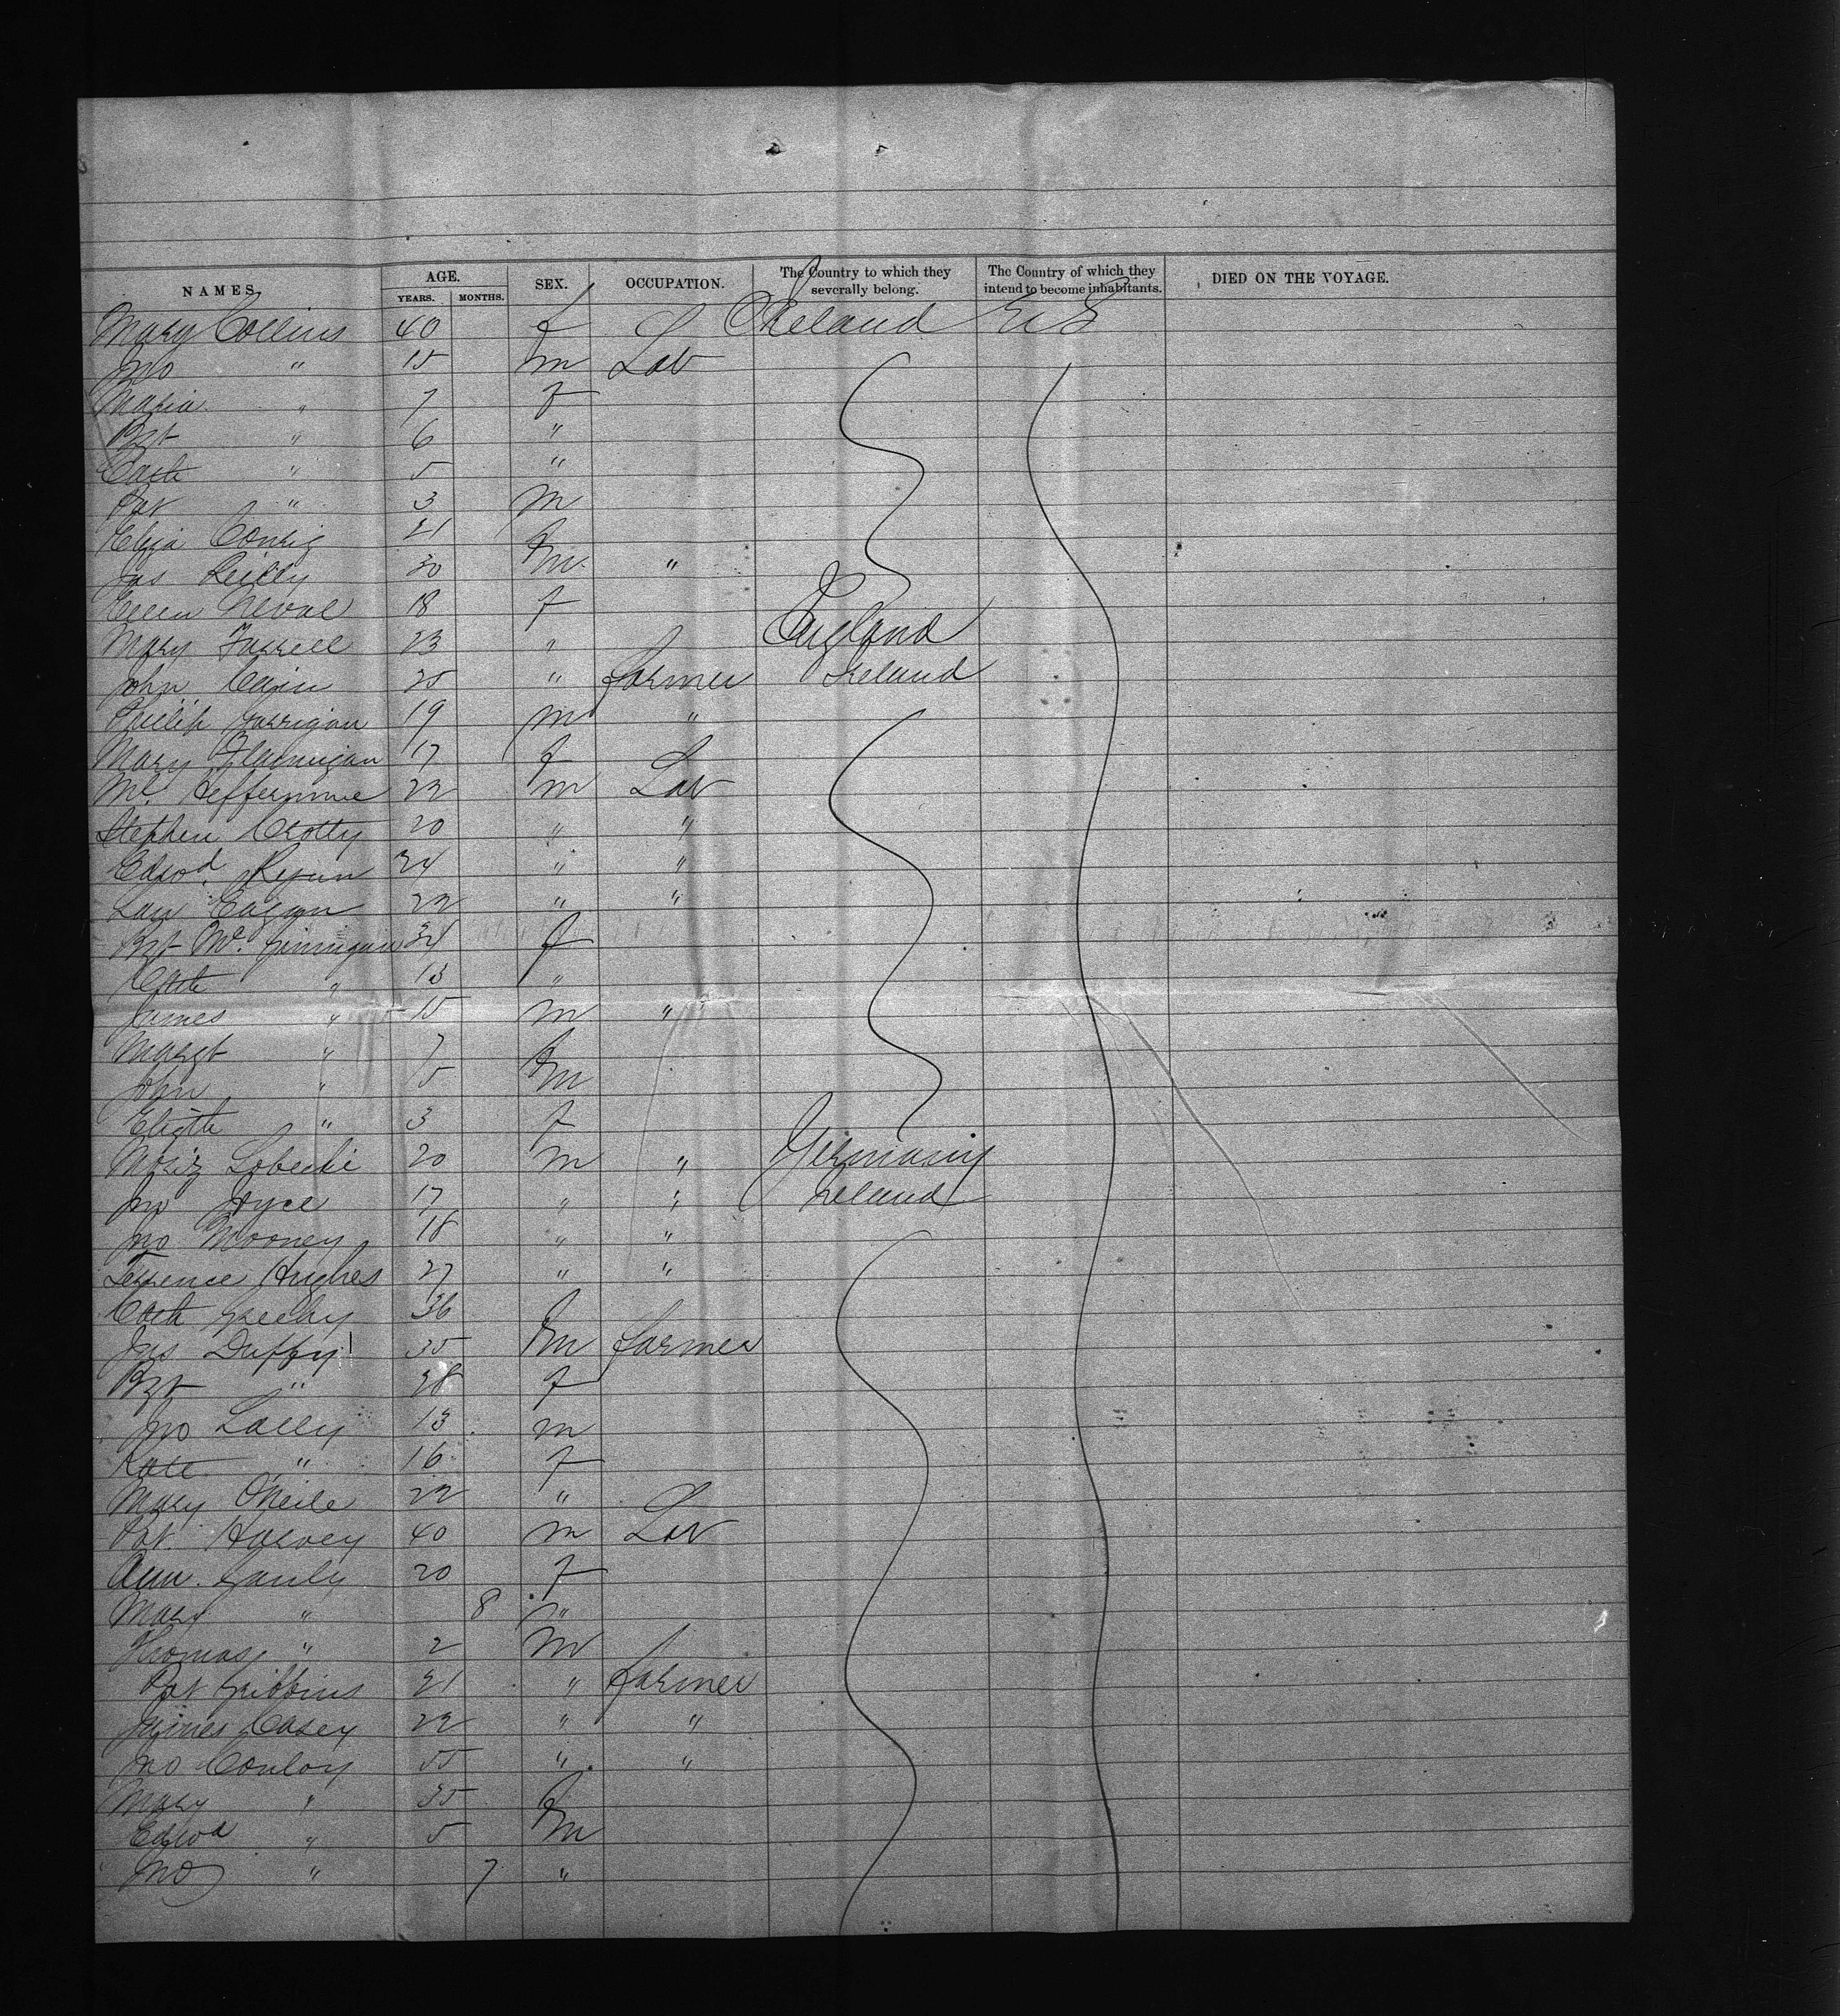 NAMES. AGE. YEARS. MONTHS. SEX. OCCUPATION. The Country to which they severally belong. The Country of which they intend to become inhabitants. DIED ON THE VOYAGE.
Mary Collins 40 f Ireland U S
Jno " 15 m Lab
Maria " 7 f
Bgt " 6 "
Cath " 5 "
Pat " 3 m
Eliza 21 f
Jas Reilly 30 m "
Ellen 18 f
Mary Farrell 23 " England
John Cain 25 " farmer Ireland
Phillip Garrigan 19 m "
Mary Flannigan 17 f
Ml. 22 m Lab
Stephen Crotty 20 " "
Edwd. Ryan 24 " "
Law Eagan 22 " "
Bgt Mc. 34 f
Cath " 13 "
James " 15 m "
Margt " 7 f
John " 5 m
Elizth " 3 f
20 m " Germany
Jno Joyce 17 " " Ireland
Jno Mooney 18 " "
Terrence Hughes 27 " "
Cath 36 f
Jas Duffy 35 m farmer
Bgt " 28 f
Jno Lally 13 m
Kate " 16 f
Mary O'Neile 22 "
Pat. Harvey 40 m Lab
Ann. 20 f
Mary " 8 "
Thomas " 2 m
Pat Gibbins 21 " farmer
James Casey 22 " "
Jno Conloy 55 " "
Mary " 35 f
Edwd " 5 m
Jno " 7 "